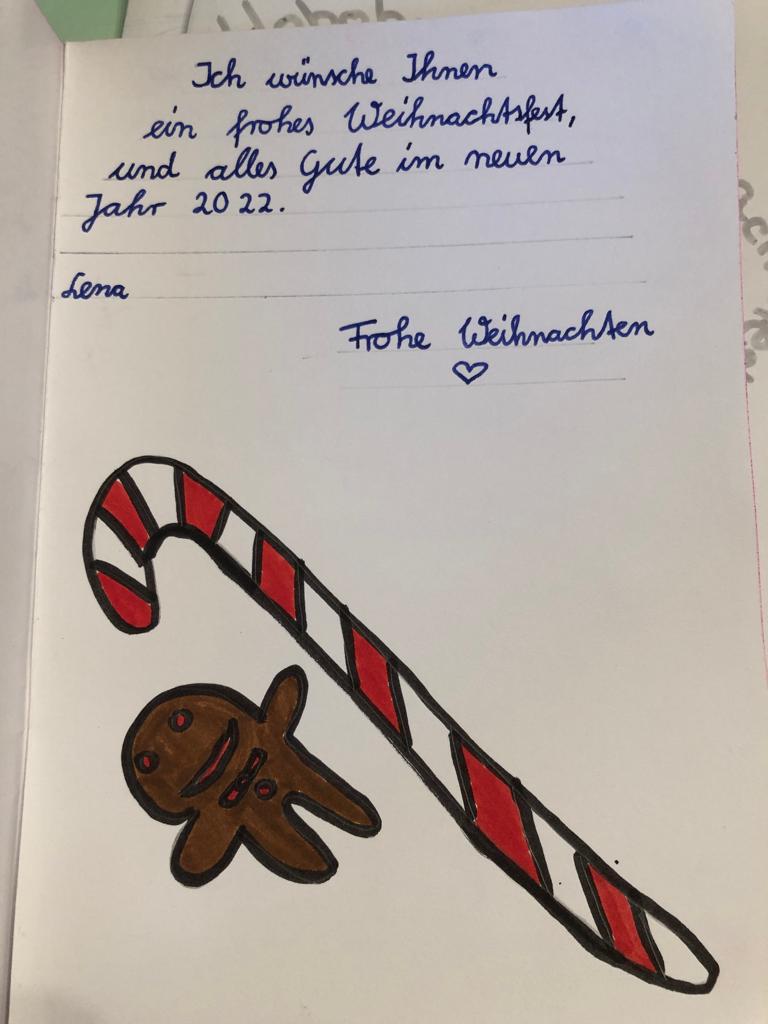 Ich wünsche Ihnen
ein frohes Weihnachtsfest,
und alles Gute im neuen
Jahr 2022.
Lena
Frohe Weihnachten
♡